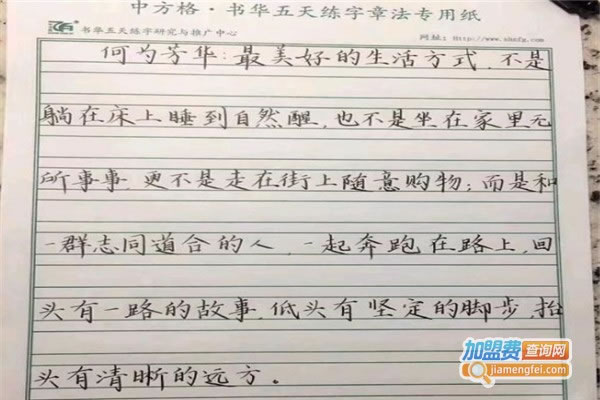 中方格·书华五天练字章法专用纸
书华五天练字研究与推广中心
网址: Http://www.shzfg.com
何为芳华:最美好的生活方式,不是
躺在床上睡到自然醒,也不是坐在家里无
所事事,更不是走在街上随意购物;而是和
一群志同道合的人,一起奔跑在路上,回
头有一路的故事,低头有坚定的脚步,抬
头有清晰的远方。
加盟费查询网
jiamengfei.com